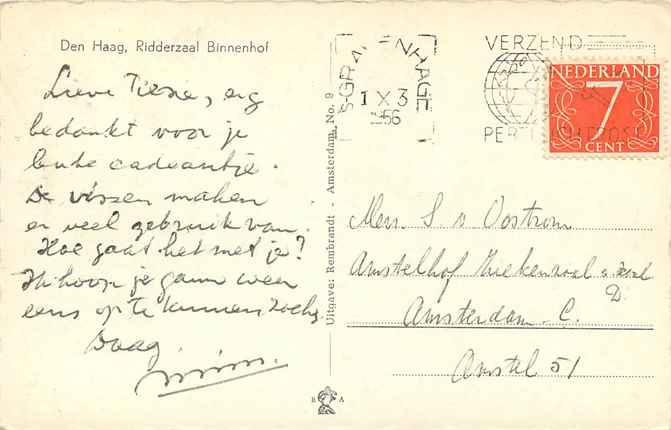 Den Haag, Ridderzaal Binnenhof
Lieve Tiene, erg
bedankt voor je
leuke cadeautje.
De vissen maken
er veel gebruik van.
Hoe gaat het met je?
Ik hoop je gauw weer
eens op te kunnen
Daag
Uitgave: Rembrandt - Amsterdam, No. 9
'S-GRAVENHAGE
1 X 3
1956
VERZEND
PER
NEDERLAND
7
CENT
Mevr. S. v Oostrom
Amstelhof Ziekenzaal
D
Amsterdam. C.
Amstel 51
R A